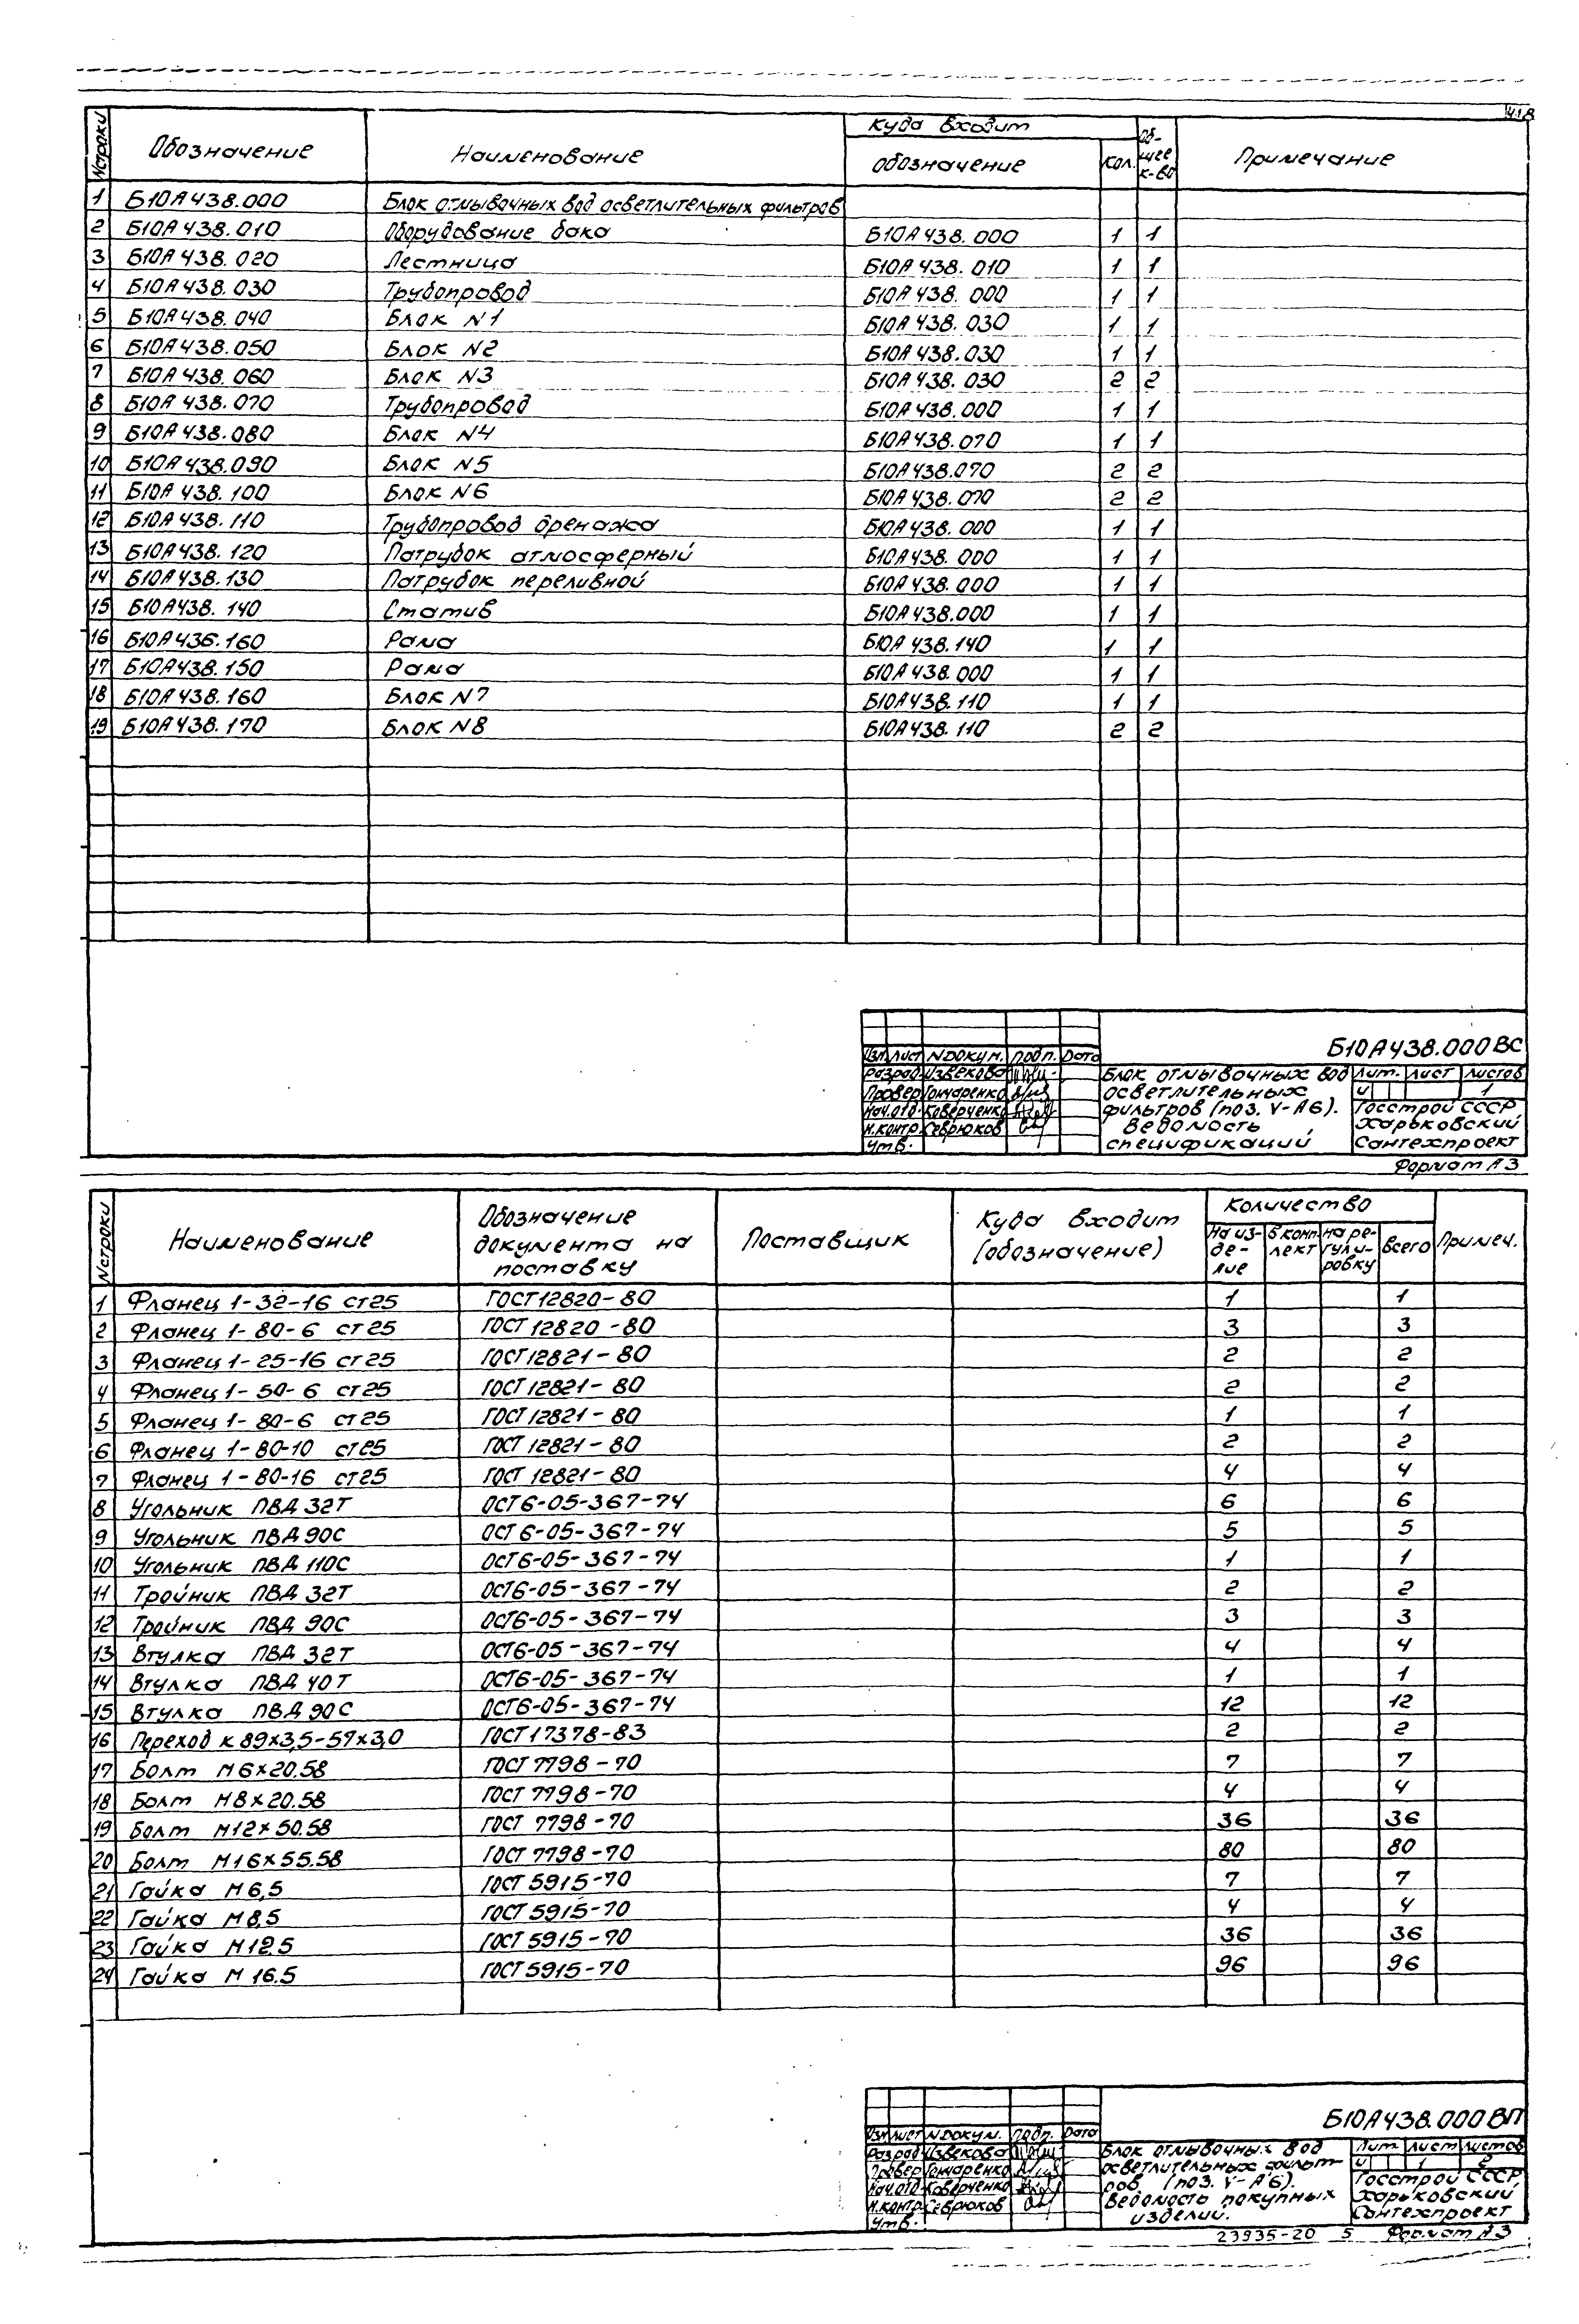 41.8
№ строки Обозначение Наименование Куда входит обозначение кол. Общее к-во Примечание
1 Б10А438.000 Блок отмывочных вод осветлительных фильтров
2 Б10А438.010 Оборудование бака Б10А438.000 1 1
3 Б10А438.020 Лестница Б10А438.010 1 1
4 Б10А438.030 Трубопровод Б10А438.000 1 1
5 Б10А438.040 Блок N1 Б10А438.030 1 1
6 Б10А438.050 Блок N2 Б10А438.030 1 1
7 Б10А438.060 Блок N3 Б10А438.030 2 2
8 Б10А438.070 Трубопровод Б10А438.000 1 1
9 Б10А438.080 Блок N4 Б10А438.070 1 1
10 Б10А438.090 Блок N5 Б10А438.070 2 2
11 Б10А438.100 Блок N6 Б10А438.070 2 2
12 Б10А438.110 Трубопровод дренажа Б10А438.000 1 1
13 Б10А438.120 Патрубок атмосферный Б10А438.000 1 1
14 Б10А438.130 Патрубок переливной Б10А438.000 1 1
15 Б10А438.140 Статив Б10А438.000 1 1
16 Б10А436.160 Рама Б10А438.140 1 1
17 Б10А438.150 Рама Б10А438.000 1 1
18 Б10А438.160 Блок N7 Б10А438.110 1 1
19 Б10А438.170 Блок N8 Б10А438.110 2 2
Б10А438.000 ВС
Изм лист N докум. подп. Дата
Разраб. Извекова
Провер Гончаренко
Нач.отд. Коверченко
Н.контр Севрюков
Утв.
Блок отмывочных вод
осветлительных
фильтров (поз. V-А6).
Ведомость
спецификаций
Лит. лист листов
И 1
Госстрой СССР
Харьковский
Сантехпроект
Формат А3
№ строки Наименование Обозначение документа на поставку Поставщик Куда входит (обозначение) Количество На изделие В комплект на регулировку Всего Примеч.
1 Фланец 1-32-16 ст25 ГОСТ 12820-80 1 1
2 Фланец 1-80-6 ст25 ГОСТ 12820-80 3 3
3 Фланец 1-25-16 ст25 ГОСТ 12821-80 2 2
4 Фланец 1-50-6 ст25 ГОСТ 12821-80 2 2
5 Фланец 1-80-6 ст25 ГОСТ 12821-80 1 1
6 Фланец 1-80-10 ст25 ГОСТ 12821-80 2 2
7 Фланец 1-80-16 ст25 ГОСТ 12821-80 4 4
8 Угольник ПВД 32Т ОСТ6-05-367-74 6 6
9 Угольник ПВД 90С ОСТ6-05-367-74 5 5
10 Угольник ПВД 110С ОСТ6-05-367-74 1 1
11 Тройник ПВД 32Т ОСТ6-05-367-74 2 2
12 Тройник ПВД 90С ОСТ6-05-367-74 3 3
13 Втулка ПВД 32Т ОСТ6-05-367-74 4 4
14 Втулка ПВД 40Т ОСТ6-05-367-74 1 1
15 Втулка ПВД 90С ОСТ6-05-367-74 12 12
16 Переход К 89х3,5-57х3,0 ГОСТ 17378-83 2 2
17 Болт М6х20.58 ГОСТ 7798-70 7 7
18 Болт М8х20.58 ГОСТ 7798-70 4 4
19 Болт М12х50.58 ГОСТ 7798-70 36 36
20 Болт М16х55.58 ГОСТ 7798-70 80 80
21 Гайка М6,5 ГОСТ 5915-70 7 7
22 Гайка М8,5 ГОСТ 5915-70 4 4
23 Гайка М12,5 ГОСТ 5915-70 36 36
24 Гайка М16.5 ГОСТ 5915-70 96 96
Б10А438.000 ВП
Изм лист N докум. подп. Дата
Разраб Извекова
Провер Гончаренко
Нач.отд Коверченко
Н.контр Севрюков
Утв.
Блок отмывочных вод
осветлительных фильт-
ров (поз. V-А6).
Ведомость покупных
изделий.
Лит. лист листов
И 1 2
Госстрой СССР
Харьковский
Сантехпроект
23935-20 5 Формат А3